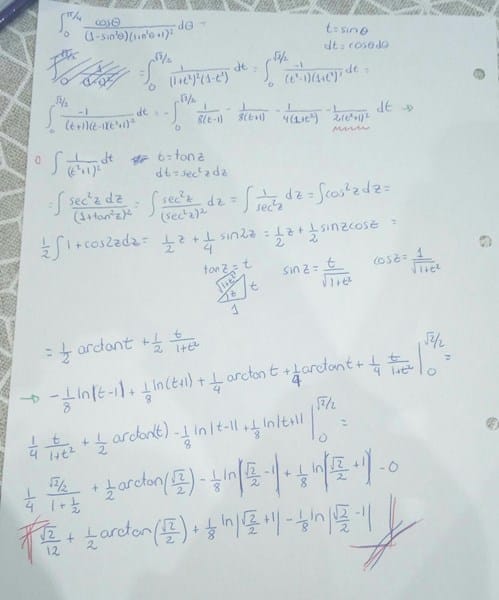 ∫₀^(π/4) cosθ/((1-sin²θ)(sin²θ+1)²) dθ = t=sinθ
dt=cosθdθ
= ∫₀^(√2/2) 1/((1+t²)²(1-t²)) dt = ∫₀^(√2/2) -1/((t²-1)(1+t²)²) dt =
∫₀^(√2/2) -1/((t+1)(t-1)(t²+1)²) dt = -∫₀^(√2/2) 1/(8(t-1)) - 1/(8(t+1)) - 1/(4(1+t²)) - 1/(2(t²+1)²) dt →
∫ 1/(t²+1)² dt t=tanz
dt=sec²z dz
= ∫ sec²z dz/(1+tan²z)² = ∫ sec²z/(sec²z)² dz = ∫ 1/sec²z dz = ∫cos²z dz =
1/2 ∫ 1+cos2z dz = 1/2 z + 1/4 sin2z = 1/2 z + 1/2 sinzcosz =
tanz=t sinz= t/√(1+t²) cosz= 1/√(1+t²)
√(1+t²) z t
1
= 1/2 arctant + 1/2 t/(1+t²)
→ -1/8 ln|t-1| + 1/8 ln(t+1) + 1/4 arctant + 1/4 arctant + 1/4 t/(1+t²) |₀^(√2/2) =
1/4 t/(1+t²) + 1/2 arctan(t) - 1/8 ln|t-1| + 1/8 ln|t+1| |₀^(√2/2) =
1/4 (√2/2)/(1+1/2) + 1/2 arctan(√2/2) - 1/8 ln|√2/2 -1| + 1/8 ln|√2/2 +1| - 0
√2/12 + 1/2 arctan(√2/2) + 1/8 ln|√2/2 +1| - 1/8 ln|√2/2 -1|